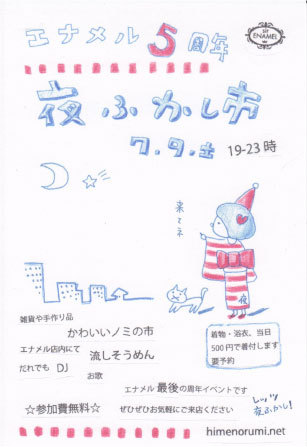 エナメル5周年
ENAMEL
夜ふかし市
7.9.土 19-23時
来てネ
夜
雑貨や手作り品
かわいいノミの市
エナメル店内にて
流しそうめん
だれでも DJ
お歌
着物・浴衣、当日
500円で着付します
要予約
エナメル最後の周年イベントです
☆参加費無料☆
ぜひぜひお気軽にご来店ください
レッツ
夜ふかし!
himenorumi.net